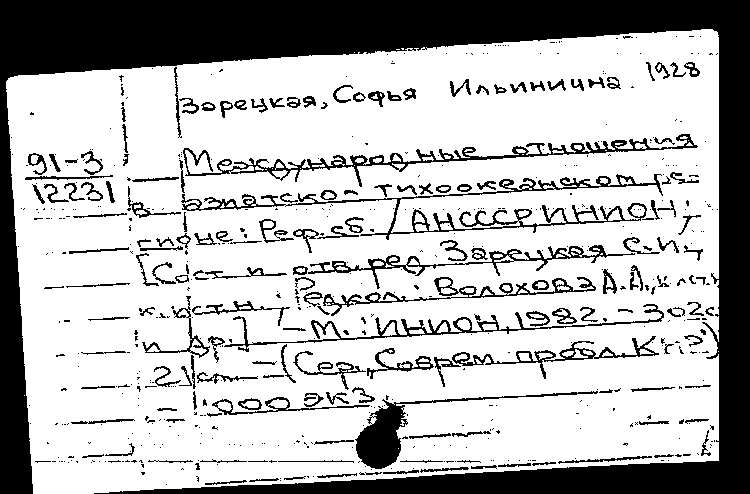 Зарецкая, Софья Ильинична. 1928
91-3
12231
Международные отношения
в азиатско-тихоокеанском ре-
гионе: Реф. сб. / АН СССР, ИНИОН;
[Сост. и отв. ред. Зарецкая С.И.,
к.ист.н.; Редкол.: Волохова А.А., к.ист.н.
и др.] – М.: ИНИОН, 1982. – 302с
21см – (Сер. "Соврем. пробл.
экз